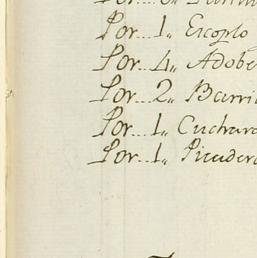 Por
Por... 1,, Escoplo
Por... 4,, Adobe
Por... 2,, Barri
Por... 1,, Cuchara
Por... 1,, Picadera